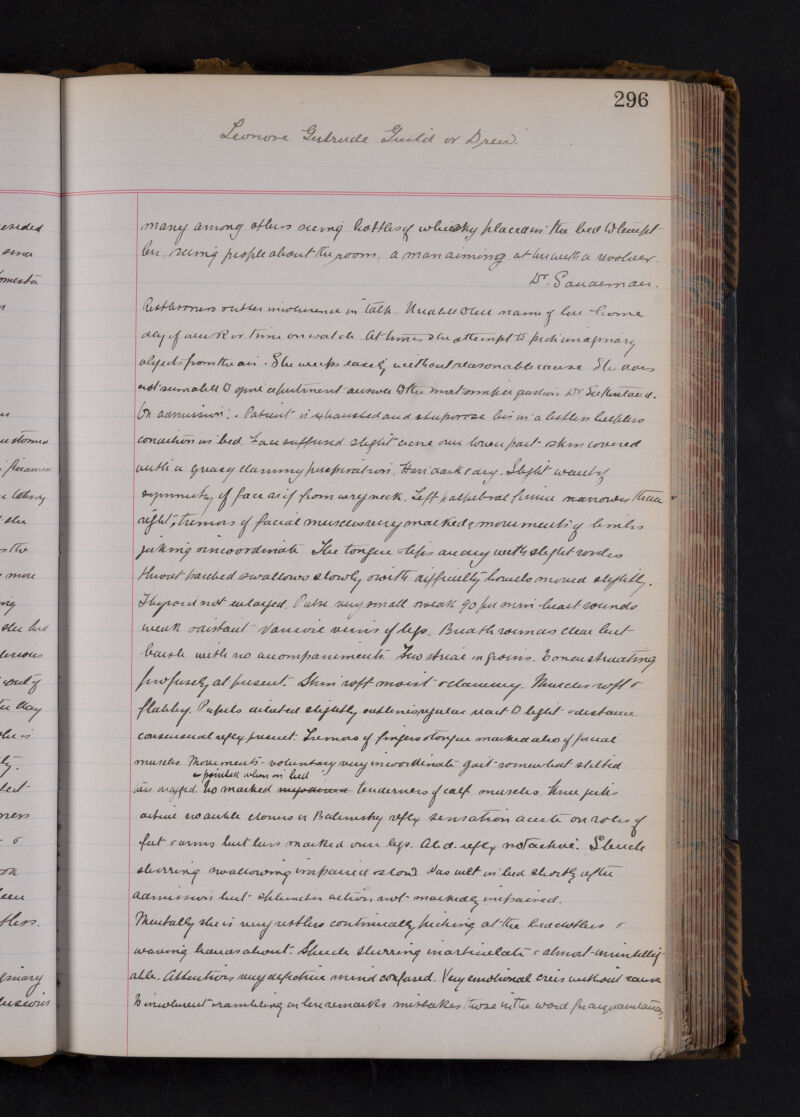 296
Leonore Gertrude Guild or Drew.
many among others seeing bottles of whisky placed in the bed to tempt
her, seeing people about the room, a man aiming at her with a revolver.
Dr. Sandeman.
Restlessness outter incoherence in talk. Unable to tell name of her home
day of week or time on watch. At times she attempts to pick imaginary
objects from the air. She weeps easily without reasonable cause. She does
not seem able to give a pertinent answer to the most simple question Dr Sutherland.
On admission:- Patient is exhausted and stuporose lies in a listless helpless
condition in bed face suffused slight acne over lower part skin covered
with a greasy clammy perspiration, Hair dark & dry. Slight want of
symmetry of face as if from wry neck. Left palpebral fissure narrower than
right; tremors of facial muscles very marked & movements of limbs
jerking & incoordinate The tongue & lips are dry with slight sordes
throat parched swallows slowly & with difficulty bowels moved slightly.
Thyroid not enlarged. Pulse very small & weak 90 per min heart sounds
weak & distant Varicose veins of legs. Breath sounds clear but
harsh with no accompaniments. Two striae in groins. Menstruating
profusely at present. Skin soft moist & clammy. Muscles soft &
flabby. Pupils dilated slightly outlines regular react to light & distance
consensual reflex present. Tremors of fingers & tongue marked also of facial
muscles. Movements - voluntary very incoordinate gait somewhat stilted
& pointed when in bed
No marked tenderness of calf muscles. Knee jerks
active no ankle clonus or Babinsky reflex sensation acute on soles of
feet & arms but less marked over legs. Abd. reflex not active. Speech
slurring swallowing impaired & slow. Was wet in bed shortly after
admission but sphincter action not markedly impaired.
Mentally she is very restless continually picking at the bedclothes &
waving hands about. Speech slurring inarticulate & almost unintellig-
able. Attention very defective mind confused. Very emotional cries without cause
Is incoherent & rambling in her remarks mistakes those in the ward for acquaintances